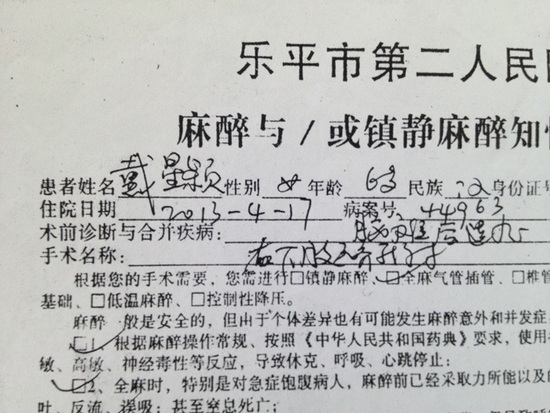 乐平市第二人民
麻醉与/或镇静麻醉知
患者姓名 戴星颖 性别 女 年龄 6岁 民族 汉 身份证号
住院日期 2013-4-17 病案号 44963
术前诊断与合并疾病: 脑瘫后遗
手术名称: 右下肢
根据您的手术需要,您需进行☐镇静麻醉、☑全麻气管插管、☐椎管
基础、☐低温麻醉、☐控制性降压。
麻醉一般是安全的,但由于个体差异也有可能发生麻醉意外和并发症
☑1、根据麻醉操作常规、按照《中华人民共和国药典》要求,使用
敏、高敏、神经毒性等反应,导致休克、呼吸、心跳停止;
☑2、全麻时,特别是对急症饱腹病人,麻醉前已经采取力所能以及的
吐、反流、误吸;甚至窒息死亡;